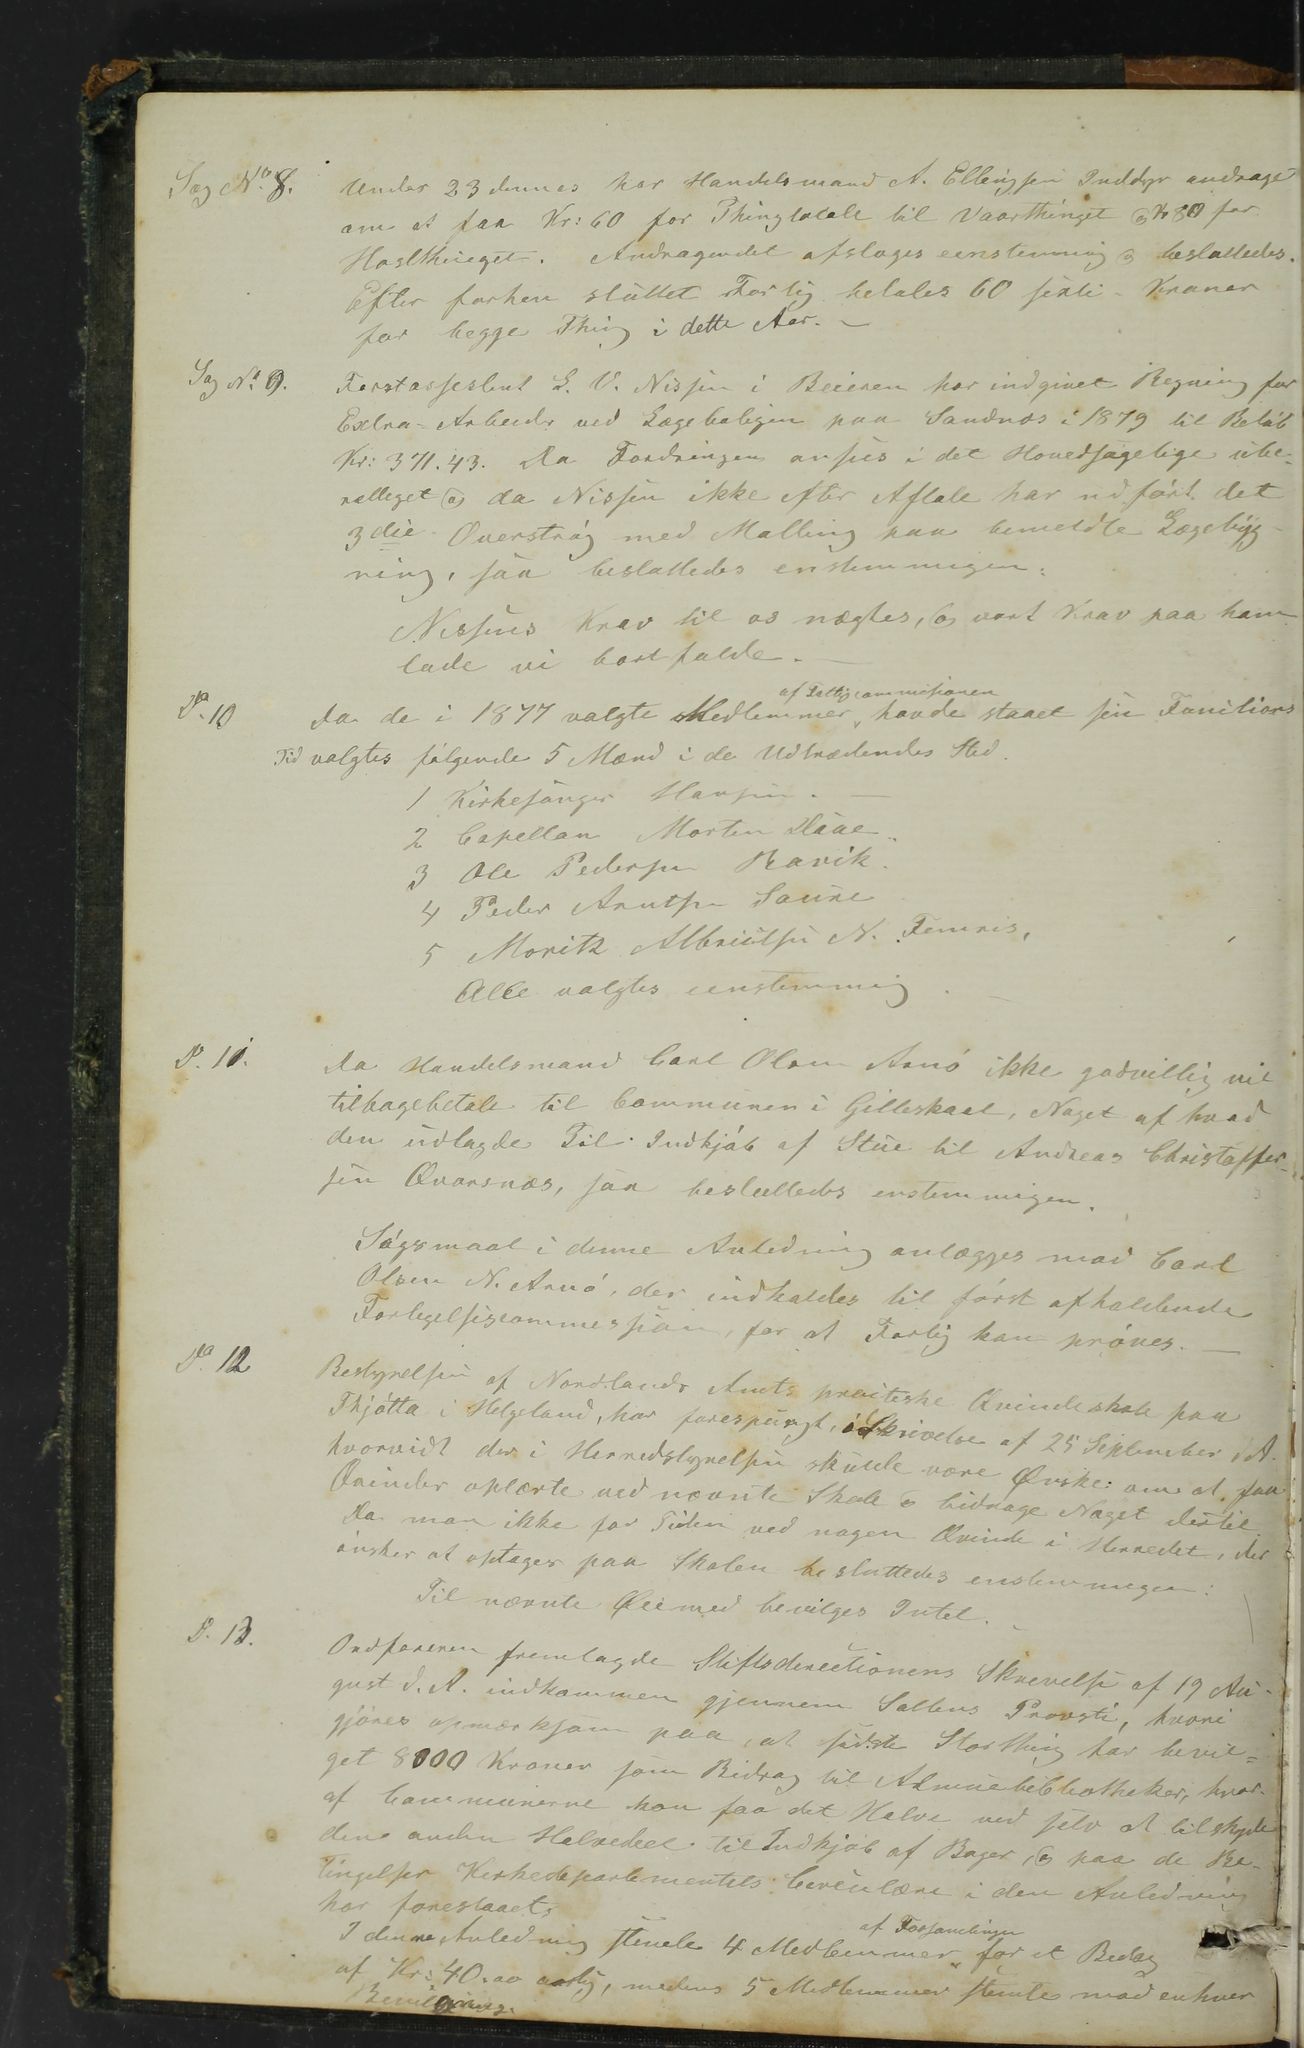 Sag No. 8. Under 23 dennes har Handelsmand A. Ellingsen Inddyr andraget
om at faa Kr: 60 for Thinglocale til Vaarthinget og Kr 80 for
Høstthinget. Andragendet afsloges eenstemmig og besluttedes.
Efter forhen sluttet Forlig betales 60 sexti - Kroner
for begge Thing i dette Aar. -
Sag No. 9. Forstassistent L. V. Nissen i Beieren har indgivet Regning for
Extra-Arbeide ved Lægeboligen paa Sandnæs i 1879 til Beløb
Kr: 371.43. Da Fordringen ansees i det Hovedsagelige ube-
rettiget og da Nissen ikke efter Aftale har udført det
3die Overstrøg med Malling paa bemeldte Lægebyg-
ning, saa besluttedes enstemmigen:
Nissens Krav til os nægtes, og vort Krav paa ham
lade vi bortfalde. -
Do. 10 Da de i 1877 valgte Medlemmer af Fattigcommisionen havde staaet sin Funktions
Tid valgtes følgende 5 Mænd i de Udtrædendes Sted.
1 Kirkesanger Hansen. -
2 Capellan Morten
3 Ole Pedersen Ravik.
4 Peder Arntsen Saura
5 Moritz Albrigtsen N. Femris,
Alle valgtes eenstemmig. -
Do. 11. Da Handelsmand Carl Olsen Arnø ikke godvillig vil
tilbagebetale til Communen i Gilleskaal, Noget af hvad
den udlagde Til Indkjøb af Stue til Andreas Christoffer-
sen Qvarsnæs, saa besluttedes enstemmigen.
Søgsmaal i denne Anledning anlægges mod Carl
Olsen N. Arnø, der indkaldes til først afholdende
Forligelsiscommission, for at Forlig kan prøves. -
Do. 12 Bestyrelsen af Nordlands Amts practiske Qvindeskole paa
Thjøtta i Helgeland, har forespurgt, i Skrivelse af 25 September d. A.
hvorvidt der i Herredstyrelsen skulde være Ønske om at faa
Qvinder oplærte ved nævnte Skole og bidrage Noget dertil
Da man ikke for Tiden ved nogen Qvinde i Herredet, der
ønsker at optages paa Skolen besluttedes enstemmigen:
Til nævnte Øiemed bevilges Intet. -
Do. 13. Ordføreren fremlagde Stiftsdirectionens Skrivelse af 19 Au-
gust d. A. indkommen gjennem Saltens Provsti, hvori
gjøres opmærksom paa, at sidste Storthing har bevil-
get 8000 Kroner som Bidrag til Almuebibliotheker, hvor-
af Communerne kan faa det Halve ved selv at tilskyde
den anden Halvedeel til Indkjøb af Bøger, og paa de Be-
tingelser Kirkedepartementets Circulære i den Anledning
har foreslaaet.
I denne Anledning stemte 4 Medlemmer af Forsamlingen for et Bidrag
af Kr: 40.00 aarlig, medens 5 Medlemmer stemte mod enhver
Bevilgning.